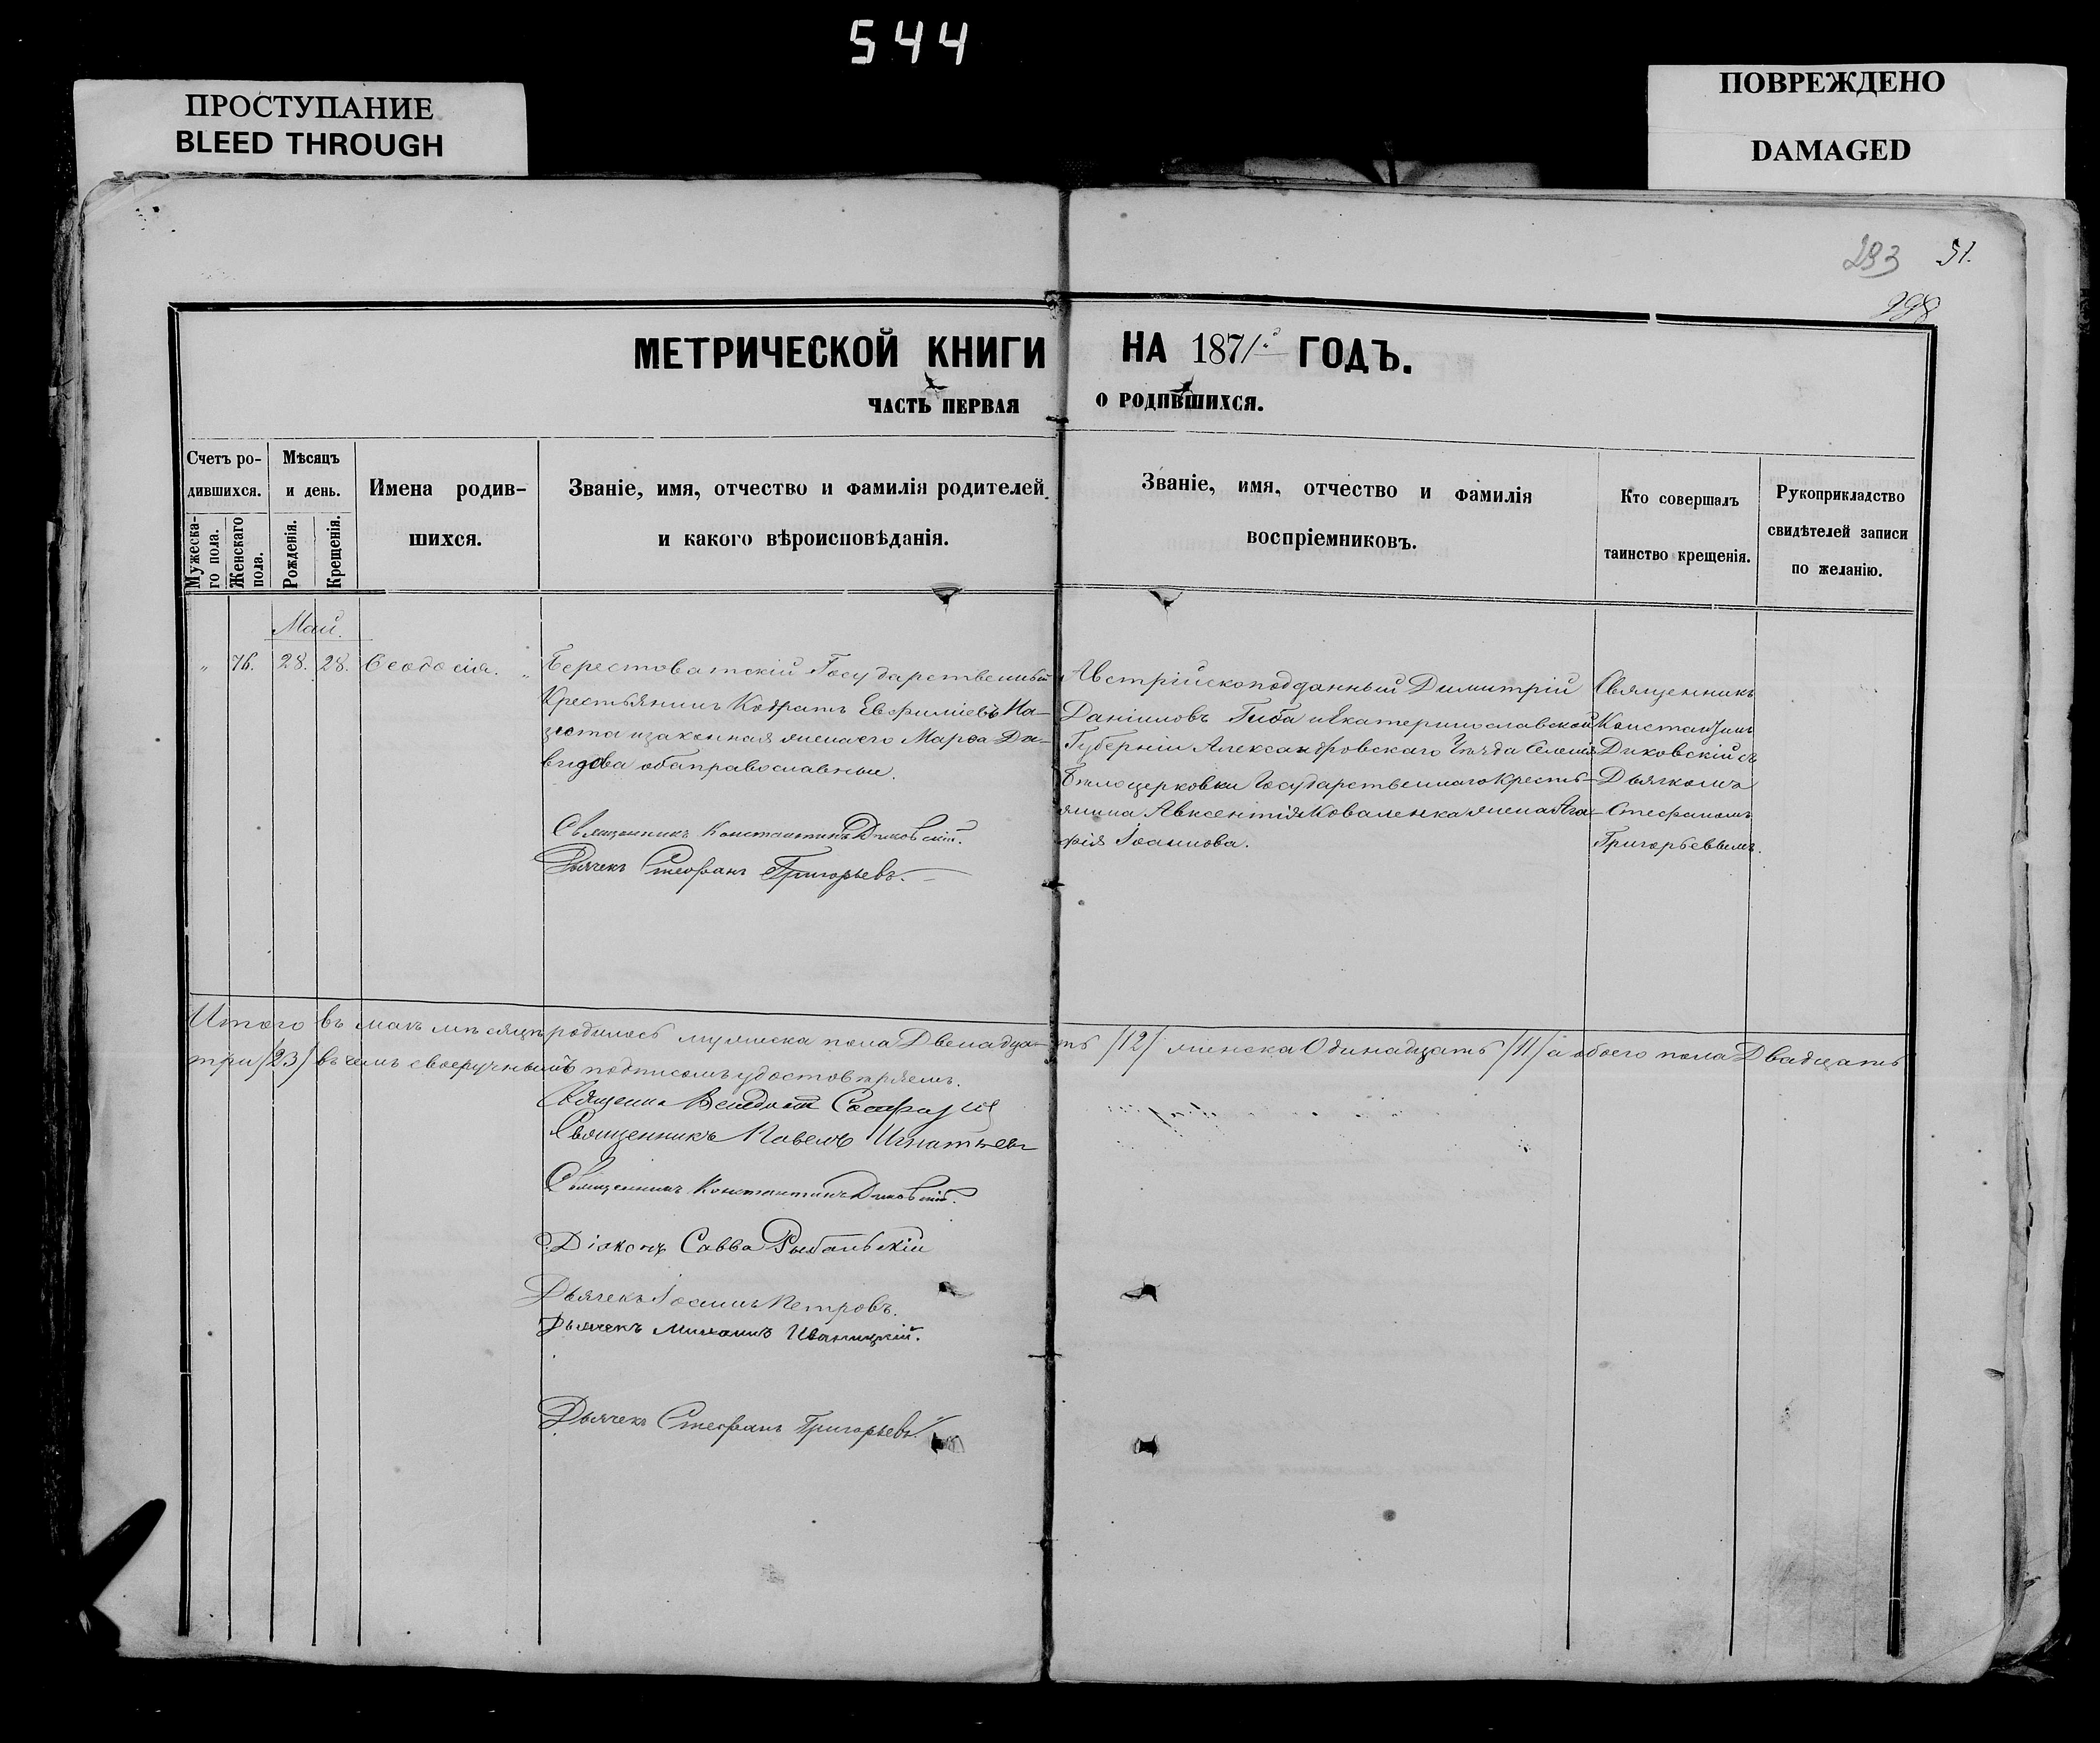 544
ПРОСТУПАНИЕ
BLEED THROUGH
ПОВРЕЖДЕНО
DAMAGED
293 51.
МЕТРИЧЕСКОЙ КНИГИ НА 1871й ГОДЪ.
ЧАСТЬ ПЕРВАЯ О РОДИВШИХСЯ.
Счетъ ро-
дившихся.
Мужеска-
го пола.
Женскаго
пола.
Мѣсяцъ
и день.
Рожденія.
Крещенія.
Имена родив-
шихся.
Званіе, имя, отчество и фамилія родителей
и какого вѣроисповѣданія.
Званіе, имя, отчество и фамилія
воспріемниковъ.
Кто совершалъ
таинство крещенія.
Рукоприкладство
свидѣтелей записи
по желанію.
Май.
" 76. 28. 28. Ѳеодосія.
Берестоватскій Государственный
Крестьянинъ Кодратъ Евфиміевъ
и законная жена его Марѳа Да-
видова оба православные.
Священникъ Константинъ Диковскій.
Дьячекъ Стефанъ Григорьевъ.
Австрійскоподданный Димитрій
Даніиловъ Гиба и Екатеринославской
Губерніи Александровскаго Уѣзда Селенія
Бѣлоцерковки Государственнаго Кресть-
янина Авксентія Коваленка жена Ага-
фія Іоаннова.
Священникъ
Константинъ
Диковскій съ
Дьячкомъ
Стефаномъ
Григорьевымъ.
Итого въ маѣ мѣсяцѣ родилось мужеска пола Двенадцать /12/ женска Одинадцать /11/ а обоего пола Двадцать
три /23/ въ чемъ своеручнымъ подписомъ удостовѣряемъ.
Священникъ Павелъ Игнатьевъ
Священникъ Константинъ Диковскій.
Діаконъ Савва Рыбальскій
Дьячекъ Іоаннъ Петровъ.
Дьячекъ Михаилъ Иваницкій.
Дьячекъ Стефанъ Григорьевъ.